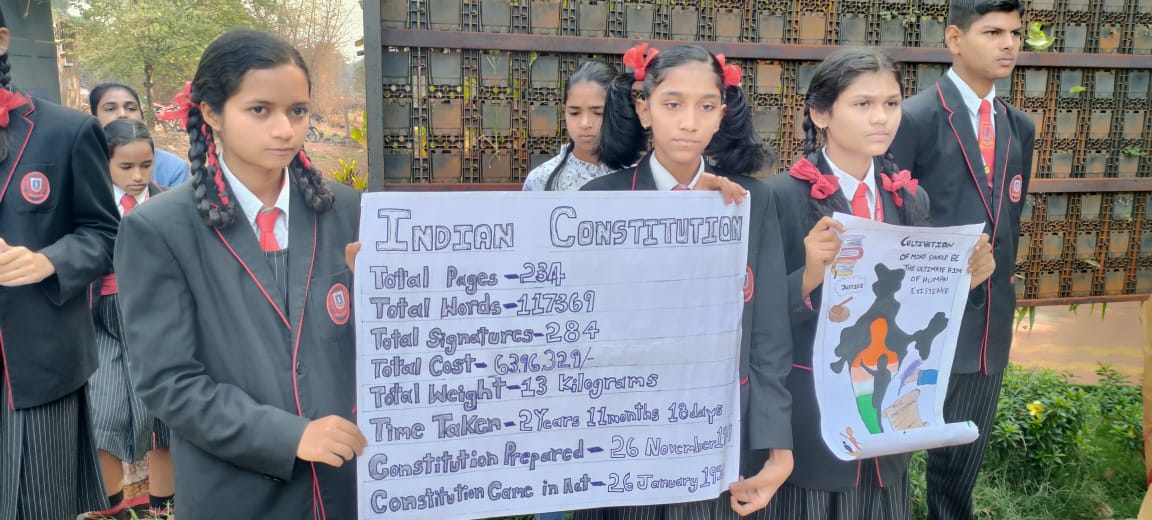 INDIAN CONSTITUTION
Total Pages -234
Total Words-117369
Total Signatures-284
Total Cost- 6396329/-
Total Weight-13 Kilograms
Time Taken- 2Years 11months 18days
Constitution Prepared- 26 November
Constitution Came in Act-26 January
CULTIVATION
OF MIND SHOULD BE
THE ULTIMATE AIM
OF HUMAN
EXISTENCE
JUSTICE